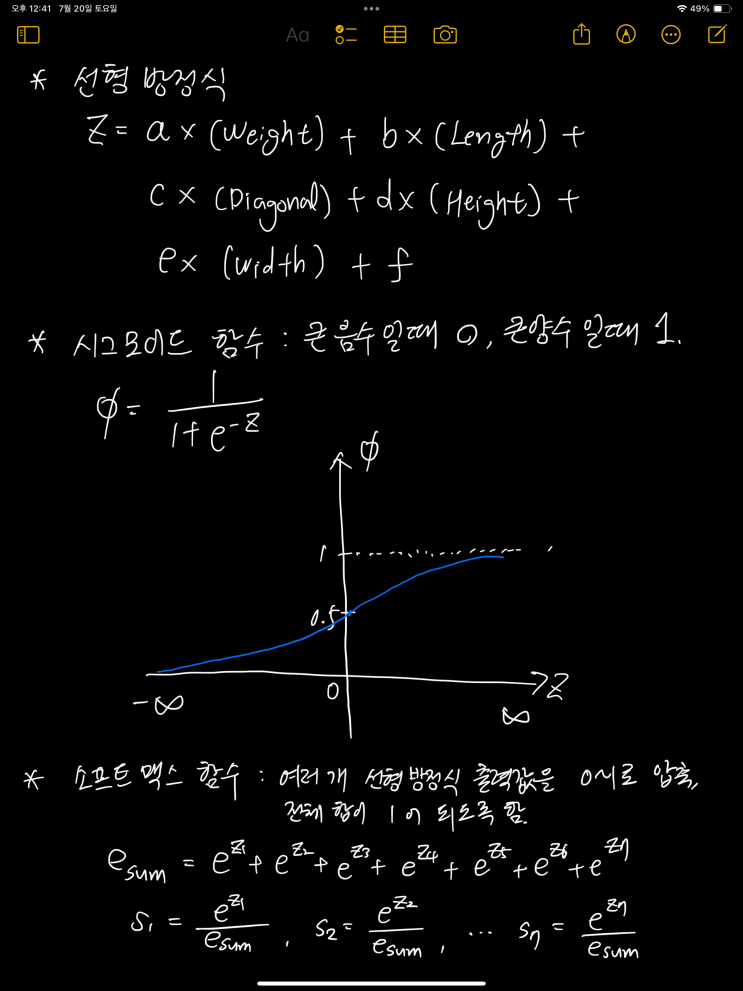 오후 12:41 7월 20일 토요일
49%
Aa
* 선형 방정식
Z = a × (Weight) + b × (Length) +
c × (Diagonal) + d × (Height) +
e × (width) + f
* 시그모이드 함수 : 큰 음수일때 0, 큰양수 일때 1.
φ = 1 / (1 + e^-z)
φ
1
0.5
0
Z
-∞
∞
* 소프트맥스 함수 : 여러개 선형방정식 출력값을 0~1로 압축,
전체 합이 1이 되도록 함.
e_sum = e^z1 + e^z2 + e^z3 + e^z4 + e^z5 + e^z6 + e^z7
S1 = e^z1 / e_sum , S2 = e^z2 / e_sum , ... S7 = e^z7 / e_sum